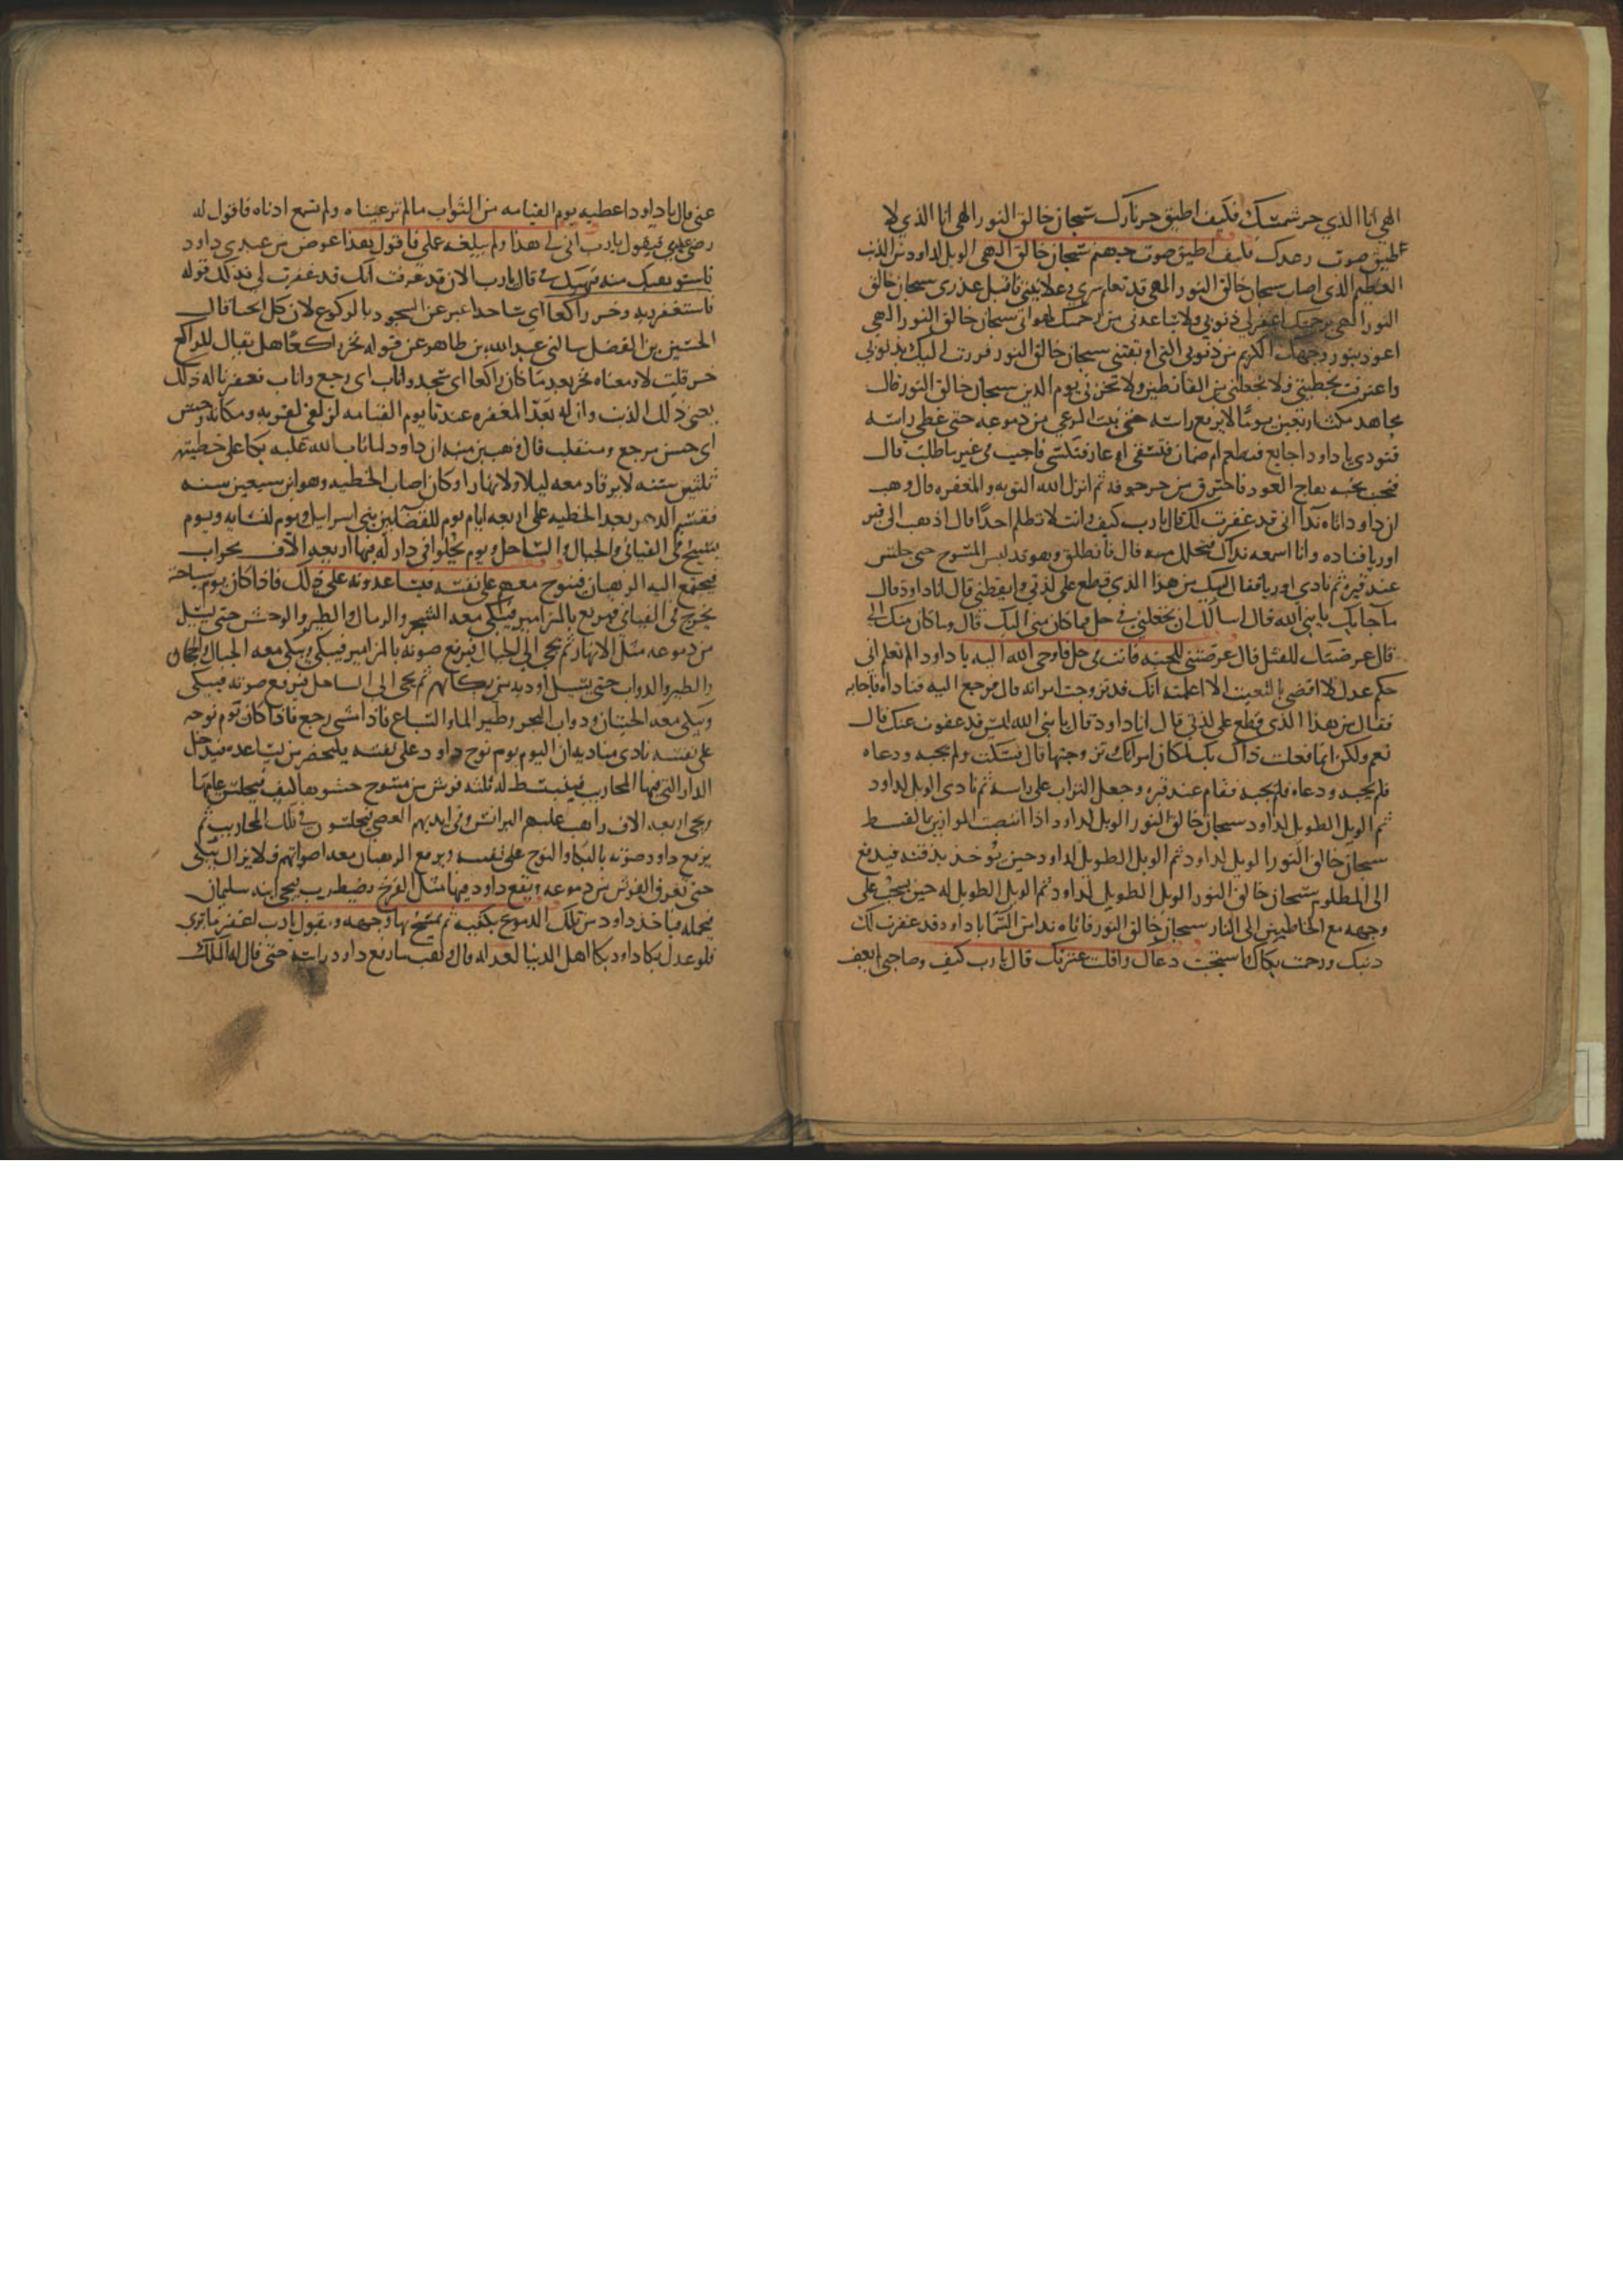 الهي انا الذي حر شمسك فكيف اطيق حر نارك سبحان خالق النور الهي انا الذي لا
اطيق صوت رعدك فكيف اطيق صوت جهنم سبحان خالق النور الهي الويل لداود من الذنب
العظيم الذي اصاب سبحان خالق النور الهي قد تعلم سري وعلانيتي فاقبل عذري سبحان خالق
النور الهي برحمتك اغفر لي ذنوبي ولا تباعدني من رحمتك لهواني سبحان خالق النور الهي
اعوذ بنور وجهك الكريم من ذنوبي التي اوبقتني سبحان خالق النور فررت اليك بذنوبي
واعترفت بخطيتي فلا تجعلني من القانطين ولا تخزني يوم الدين سبحان خالق النور قال
مجاهد مكث اربعين يوما لا يرفع راسه حتى نبت المرعي من دموعه حتى غطى راسه
فنودي يا داود اجايع فتطعم ام ضمان فتسقى او عار فتكسى فاجيب في غير ما طلب قال
فنحب نحبه فهاج العود فاحترق من حر جوفه ثم انزل الله التوبه والمغفره قال وهب
ان داود اتاه ندا اني قد غفرت لك قال يا رب كيف وانت لا تظلم احدا قال اذهب الى قبر
اوريا فناده وانا اسمعه نداك فتحلل منه قال فانطلق وهو قد لبس المسوح حتى جلس
عند قبره ثم نادى اوريا فقال لبيك من هذا الذي قطع علي لذتي وايقظني قال انا داود قال
ما جابك يا نبي الله قال اسالك ان تجعلني في حل مما كان مني اليك قال وما كان منك الي
قال عرضتك للقتل قال عرضتني للجنه فانت في حل فاوحى الله اليه يا داود الم تعلم اني
حكم عدل لا اقضي بالتعنت الا اعلمته انك قد تزوجت امراته قال فرجع اليه فناداه فاجابه
فقال من هذا الذي قطع علي لذتي قال انا داود قال يا نبي الله اليس قد عفوت عنك قال
نعم ولكن انما فعلت ذاك بك لمكان امراتك تزوجتها قال فسكت ولم يجبه ودعاه
فلم يجبه ودعاه فلم يجبه فقام عند قبره وجعل التراب على راسه ثم نادى الويل لداود
ثم الويل الطويل لداود سبحان خالق النور الويل لداود اذا انتصبت الموازين بالقسط
سبحان خالق النور الويل لداود ثم الويل الطويل لداود حين يوخذ بذقنه فيدفع
الى المظلوم سبحان خالق النور الويل الطويل لداود ثم الويل الطويل له حين يسحب على
وجهه مع الخاطين الى النار سبحان خالق النور فاتاه ندا من السما يا داود قد غفرت لك
ذنبك ورحمت بكاك واستجبت دعاك واقلت عثرتك قال يا رب كيف وصاحبي لم يعف
عني قال يا داود اعطيه يوم القيامه من الثواب ما لم تر عيناه ولم تسمع اذناه فاقول له
رضي عبدي فيقول يا رب انى لي هذا ولم يبلغه عملي فاقول هذا عوض من عبدي داود
فاستوهبك منه فيهبك لي قال يا رب الان قد عرفت انك قد غفرت لي فذلك قوله
فاستغفر ربه وخر راكعا اي ساجدا عبر عن السجود بالركوع لان كل انحنا قال
الحسين بن الفضل سالني عبد الله بن طاهر عن قوله وخر راكعا هل يقال للراكع
خر قلت لا ومعناه فخر بعد ما كان راكعا اي سجد واناب اي رجع وتاب فغفرنا له ذلك
يعني ذلك الذنب وان له بعد المغفره عندنا يوم القيامه لزلفى لقربه ومكانه وحسن
اي حسن مرجع ومنقلب قال وهب بن منبه ان داود لما تاب الله عليه بكا على خطيته
ثلثين سنه لا يرقا دمعه ليلا ولا نهارا وكان اصاب الخطيه وهو ابن سبعين سنه
فقسم الدهر بعد الخطيه على اربعه ايام يوم للقضا بين بني اسرايل ويوم لنسايه ويوم
يسيح في الفيافي والجبال والساحل ويوم يخلوا في دار له فيها اربعه الاف محراب
فيجتمع اليه الرهبان فينوح معهم على نفسه فيساعدونه على ذلك فاذا كان يوم سياحته
يخرج في الفيافي فيرفع بالمزامير فيبكي معه الشجر والرمال والطير والوحش حتى يسيل
من دموعه مثل الانهار ثم يجي الى الجبال فيرفع صوته بالمزامير فيبكي ويبكي معه الجبال والحجاره
والطير والدواب حتى يسيل اوديه من بكايهم ثم يجي الى الساحل فيرفع صوته فيبكي
ويبكي معه الحيتان ودواب البحر وطير الما والسباع فاذا امسى رجع فاذا كان يوم نوحه
على نفسه نادى مناديه ان اليوم يوم نوح داود على نفسه فليحضر من يساعده فيدخل
الدار التي فيها المحاريب فيبسط له ثلثه فرش من مسوح حشوها ليف فيجلس عليها
ويجي اربعه الاف راهب عليهم البرانس وفي ايديهم العصي فيجلسون في تلك المحاريب ثم
يرفع داود صوته بالبكا والنوح على نفسه ويرفع الرهبان معه اصواتهم فلا يزال يبكي
حتى تغرق الفرش من دموعه ويقع داود فيها مثل الفرخ يضطرب فيجي ابنه سليمان
فيحمله فياخذ داود من تلك الدموع بكفيه ثم يمسح بها وجهه ويقول يا رب اغفر ما ترى
فلو عدل بكا داود بكا اهل الدنيا لعدله قال وهب ما رفع داود راسه حتى قال له الملك